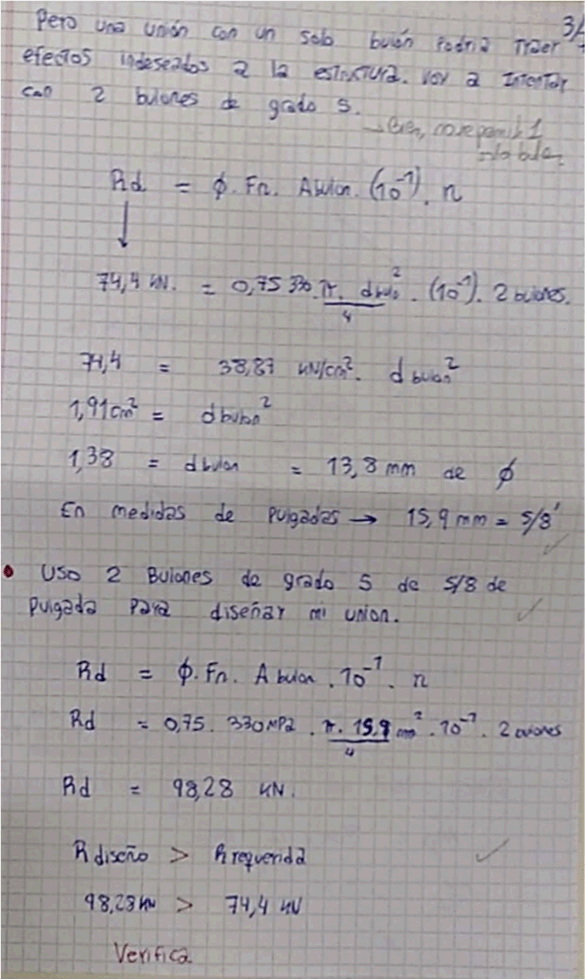 3/
Pero una unión con un solo bulón podria traer
efectos indeseados a la estructura. Voy a Intentar
con 2 bulones de grado 5.
→ Bien, no se permite 1
solo bulon
Rd = ϕ. Fn. Abulon. (10⁻¹). n
↓
74,4 kN. = 0,75 330 . π. dbulon² / 4 . (10⁻¹). 2 bulones.
74,4 = 38,87 kN/cm². d bulon²
1,91cm² = dbulon²
1,38 = dbulon = 13,8 mm de ϕ
En medidas de Pulgadas → 15,9 mm = 5/8'
• Uso 2 Bulones de grado 5 de 5/8 de
Pulgada para diseñar mi union.
Rd = ϕ. Fn. A bulon . 10⁻¹. n
Rd = 0,75. 330 MPa . π. 15,9 cm² / 4 . 10⁻¹. 2 bulones
Rd = 98,28 kN.
R diseño > R requerida
98,28 kN > 74,4 kN
Verifica